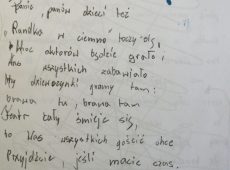 Panie, panów dzieci też
"Randka w ciemno" toczy się,
Moc aktorów będzie grało,
Nas wszystkich zabawiało
My dziewczynki gramy tam:
brawa tu, brawa tam.
Teatr cały śmieje się,
to Nas wszystkich gościć chce
Przyjdźcie, jeśli macie czas.